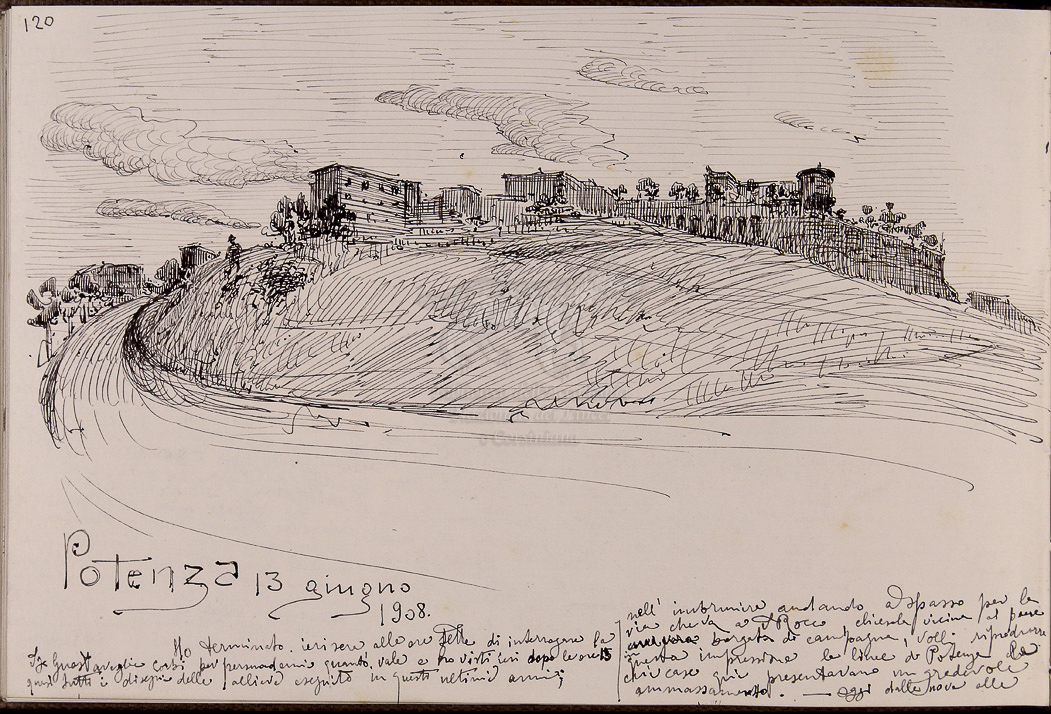 120
Potenza 13 giugno
1908.
Ho terminato ieri sera alle ore sette di interrogare la
per quanto vale e ho visti ieri dopo le ore 15
quasi tutti i disegni delle allieve eseguito in questi ultimi anni;
nell' imbrunire andando a spasso per la
via che va a S Rocco chiesola vicina al paese
borgata di campagna, volli riprodurre
questa impressione la linea di Potenza
case qui presentavano un gradevole
ammassamento. — Oggi dalle nove alle